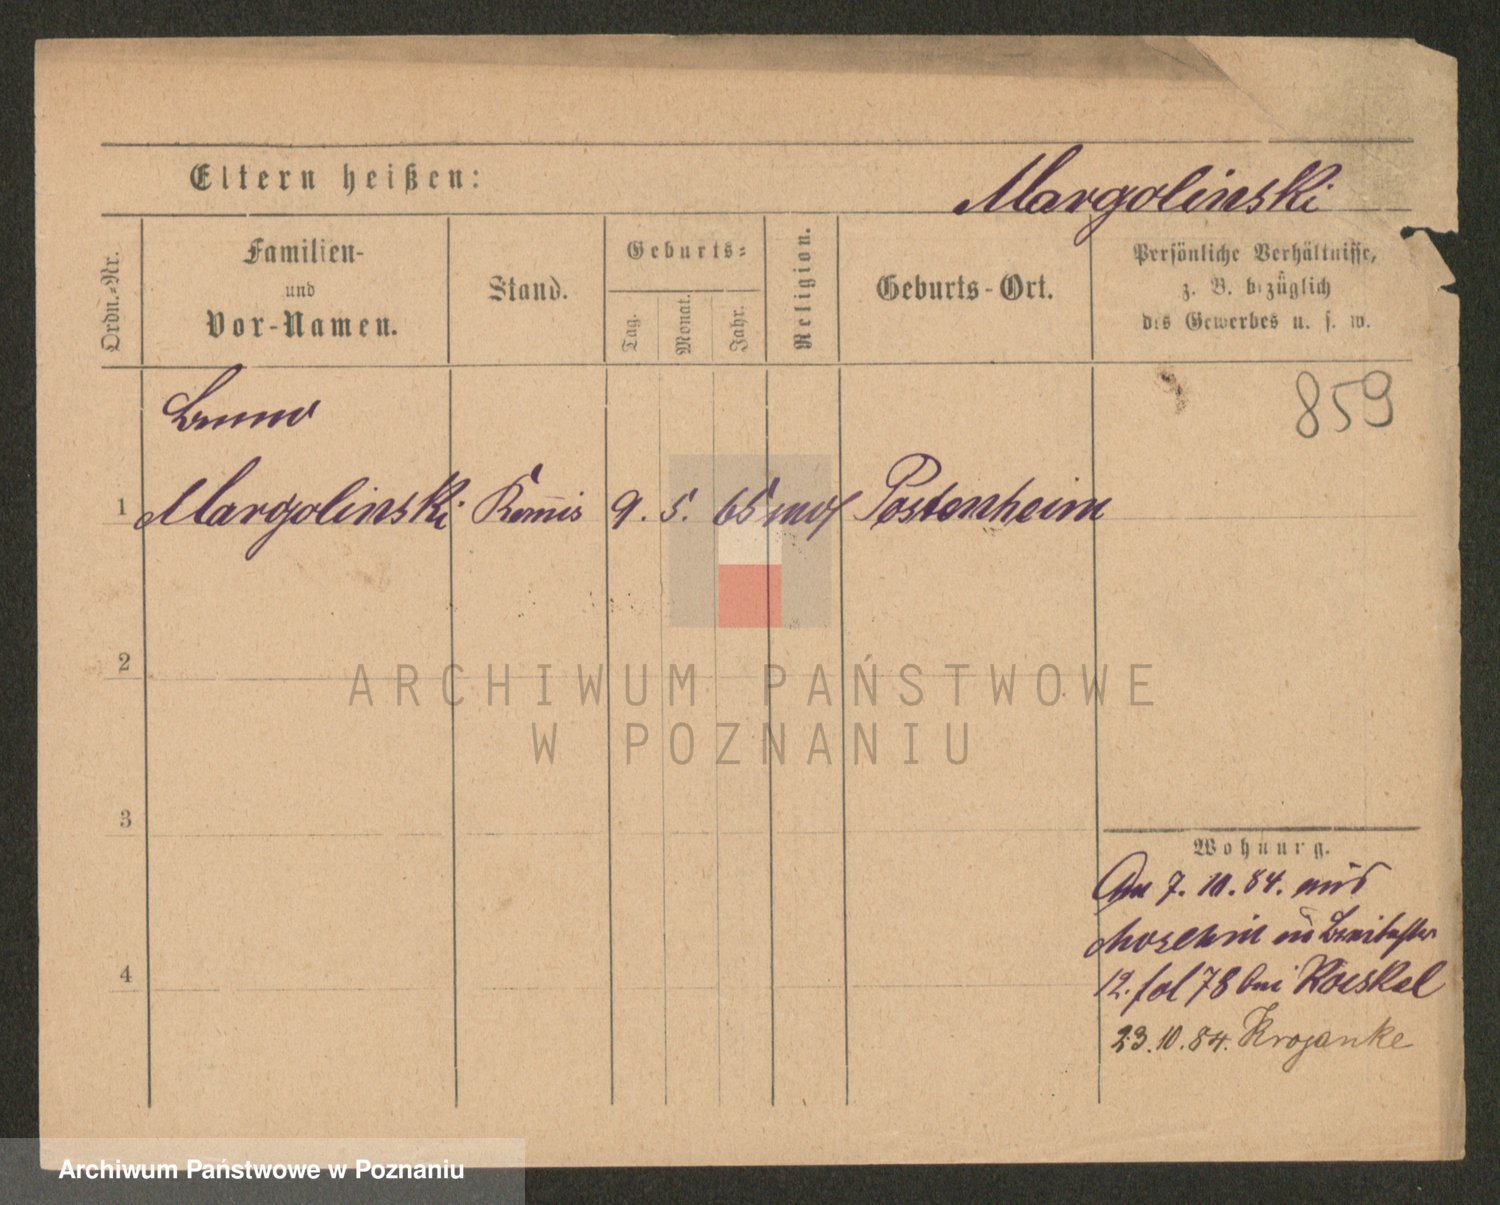 Eltern heißen:
Margolinski
Ordn.-Nr.
Familien-
und
Vor-Namen.
Stand.
Geburts-
Tag.
Monat.
Jahr.
Religion.
Geburts-Ort.
Persönliche Verhältnisse,
z. B. bezüglich
des Gewerbes u. s. w.
859
Bruno
1 Margolinski Kom̅is 9. 5. 65 mos Postenheim
2
3
4
ARCHIWUM PAŃSTWOWE
W POZNANIU
Wohnung.
Am 7. 10. 84. aus
Moschin in Breitestr
12. fol 78 bei Koeskel
23. 10. 84. Krojanke
Archiwum Państwowe w Poznaniu